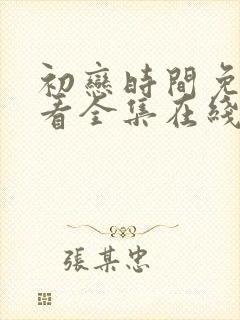 初戀時間免
看全集在綫
張某忠